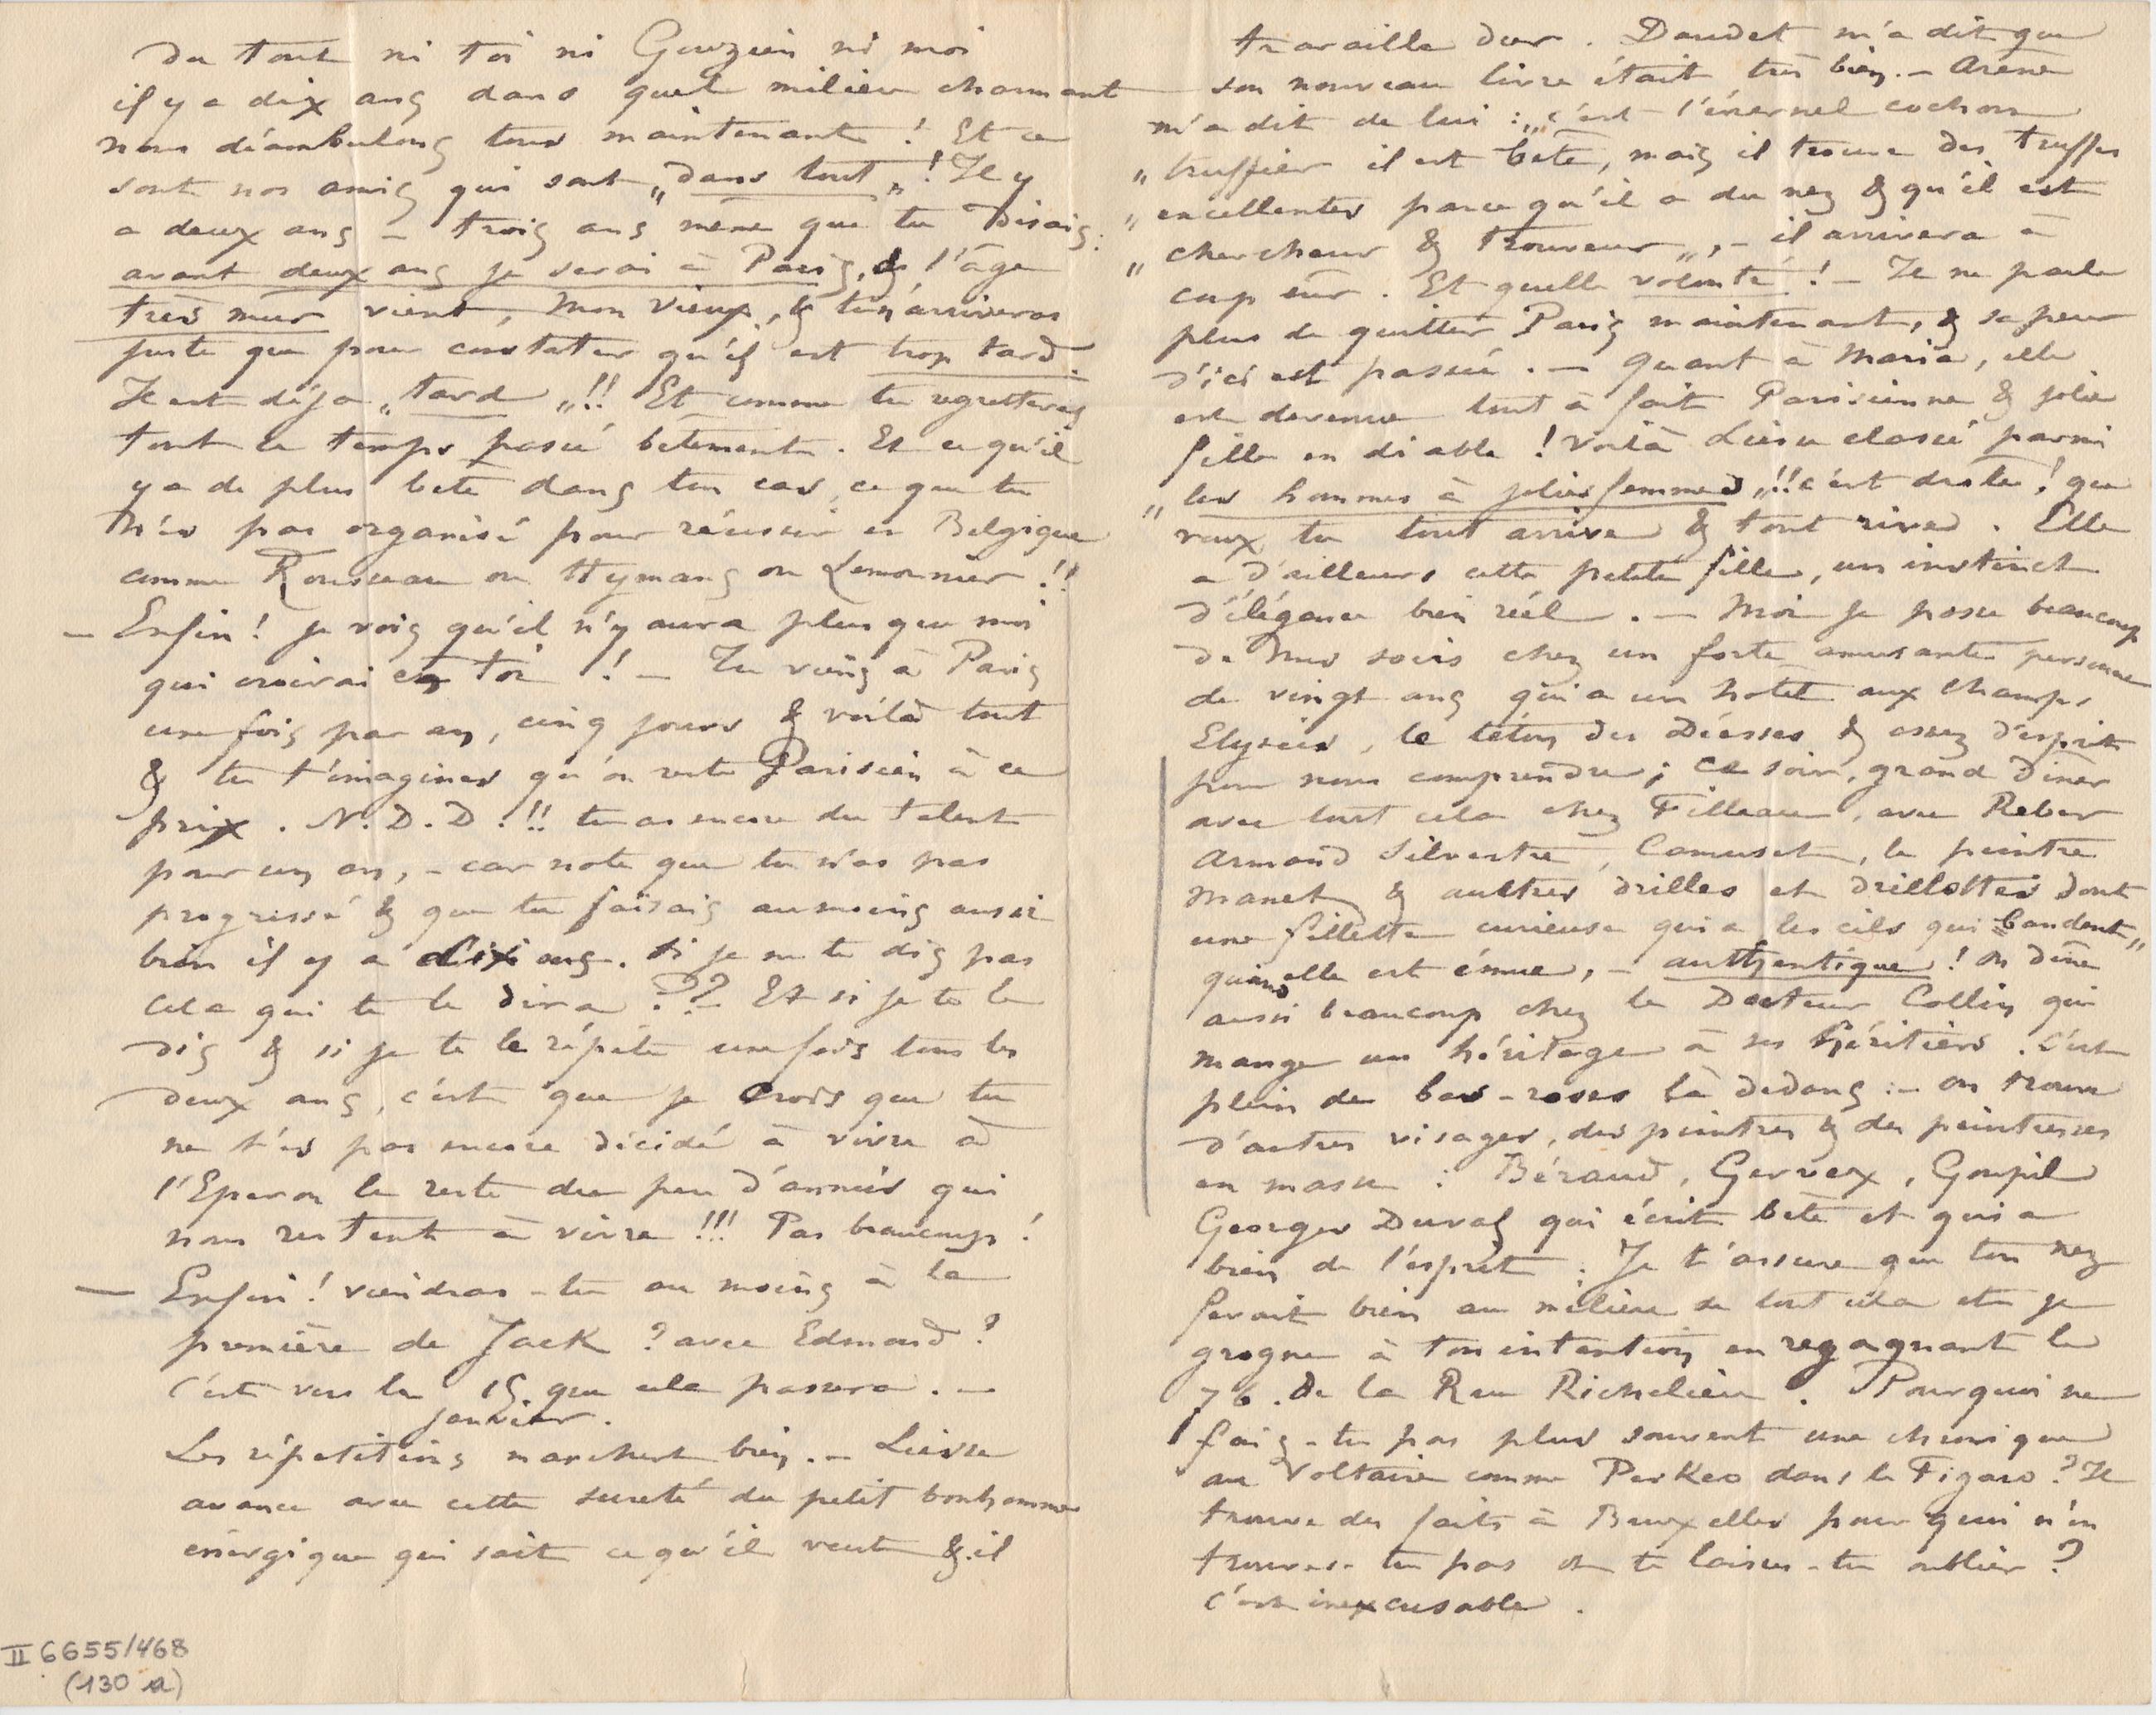 du tout ni toi ni Gouzien ni moi
il y a dix ans dans quel milieu charmant
nous déambulons tous maintenant ! Et ce
sont nos amis qui sont „dans tout„ ! Il y
a deux ans – trois ans même que tu disais :
avant deux ans je serai à Paris, & l'âge
très mûr vient, mon vieux, & tu n'arriveras
juste que pour constater qu'il est trop tard.
Il est déja „tard„ !! Et comme tu regretteras
tout ce temps passé bêtement. Et ce qu'il
y a de plus bête dans ton cas, ce que tu
n'es pas organisé pour réussir en Belgique
comme Rousseau ou Hymans ou Lemonnier !!
– Enfin ! je vois qu'il n'y aura plus que moi
qui croirai en toi ! – Tu viens à Paris
une fois par an, cinq jours & voilà tout
& tu t'imagines qu'on reste Parisien à ce
prix. N. D. D. !! tu as encore du talent
pour un an, – car note que tu n'as pas
progressé & que tu faisais au moins aussi
bien il y a dix ans. Si je ne te dis pas
cela qui te le dira ??? – Et si je te le
dis & si je te le répète une fois tous les
deux ans, c'est que je crois que tu
ne t'es pas encore décidé à vivre à
l'Eperon le reste du peu d'années qui
nous restent à vivre !!! Pas beaucoup !
– Enfin ! viendras-tu au moins à la
première de Jack ? avec Edmond ?
C'est vers le 15 que cela passera. –
janvier.
Les répétitions marchent bien. – Liesse
avance avec cette sureté du petit bonhomme
énergique qui sait ce qu'il veut & il
travaille dur. Daudet m'a dit que
son nouveau livre était très bien. – Arène
m'a dit de lui : „c'est l'éternel cochon
„ truffier il est bête, mais il trouve des truffes
„ excellentes parce qu'il a du nez & qu'il est
„ chercheur & trouveur„, – il arrivera à
coup sûr. Et quelle volonté ! – Il ne parle
plus de quitter Paris maintenant, & sa peur
d'ici est passée. – Quant à Maria, elle
est devenue tout à fait Parisienne & jolie
fille en diable ! Voilà Liesse classé parmi
„ les hommes à jolies femmes„ !! c'est drôle ! que
veux tu tout arrive & tout rive. Elle
a d'ailleurs cette petite fille, un instinct
d'élégance bien réel. – Moi je passe beaucoup
de mes soirs chez un forte amusante personne
de vingt ans qui a un hotel aux Champs
Elysées, le téton des Déesses & assez d'esprit
pour nous comprendre ; ce soir, grand dîner
avec tout cela chez Filleau, avec Reber
Armand Silvestre, Camuset, le peintre
Manet & aultres drilles et drillottes dont
une fillette curieuse qui a les cils qui „bandent„
quand elle est émue, – authentique ! On dîne
aussi beaucoup chez le Docteur Collin qui
mange un héritage à ses héritiers. C'est
plein de bas-roses là dedans : – on trouve
d'autres visages, des peintres & des peintresses
en masse : Béraud, Gervex, Goupil
Georges Duval qui écrit bête et qui a
bien de l'esprit ; Je t'assure que ton nez
ferait bien au milieu de tout cela et je
grogne à ton intention en regagnant le
76. de la Rue Richelieu. Pourquoi ne
fais-tu pas plus souvent une chronique
au Voltaire comme Perkeo dans le Figaro ? Il
trouve des faits à Bruxelles pourquoi n'en
trouves-tu pas ou te laisses-tu oublier ?
C'est inexcusable.
II 6655/468
(130 a)